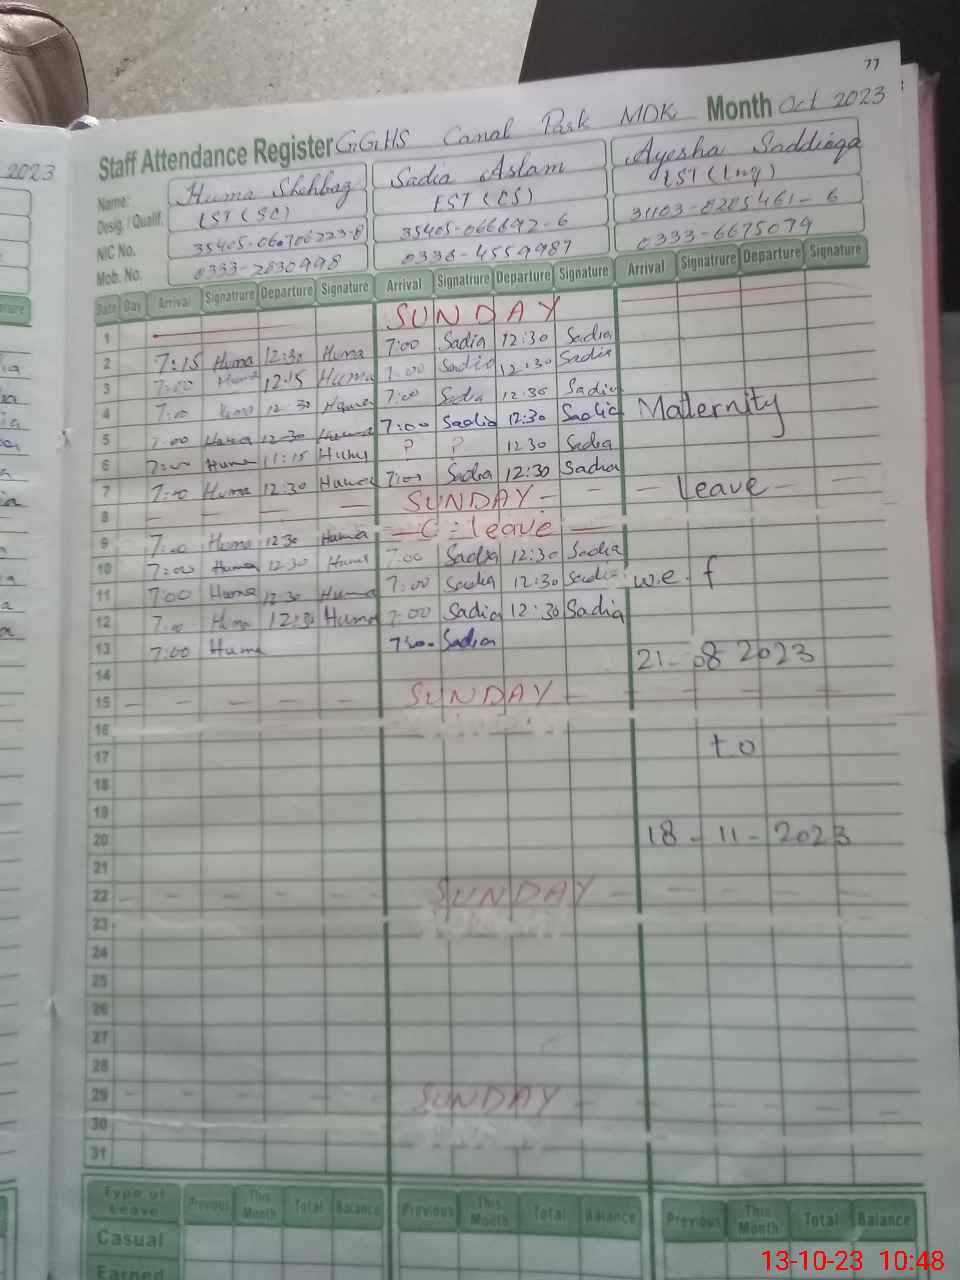 77
2023
Staff Attendance Register GGHS Canal Park MDK Month Oct 2023
Name: Huma Shehbaz Sadia Aslam Ayesha Saddiqa
Desig. / Qualif. EST (SC) EST (CS) EST (Eng)
NIC No. 35405-0667 35405-066692-6 31103-8285461-6
Mob. No. 0333-2830998 0336-4559987 0333-6675079
Date Day Arrival Signatrure Departure Signature Arrival Signatrure Departure Signature Arrival Signatrure Departure Signature
1 SUNDAY
2 7:15 Huma 12:30 Huma 7:00 Sadia 12:30 Sadia
3 7:00 Huma 12:15 Huma 7:00 Sadia 12:30 Sadia
4 7:00 Huma 12:30 Huma 7:00 Sadia 12:30 Sadia Maternity
5 7:00 Huma 12:30 Huma 7:00 Sadia 12:30 Sadia
6 7:00 Huma 11:15 Huma ? ? 12:30 Sadia
7 7:00 Huma 12:30 Huma 7:00 Sadia 12:30 Sadia Leave
8 SUNDAY
9 7:00 Huma 12:30 Huma C = leave
10 7:00 Huma 12:30 Huma 7:00 Sadia 12:30 Sadia
11 7:00 Huma 12:30 Huma 7:00 Sadia 12:30 Sadia w.e.f
12 7:00 Huma 12:30 Huma 7:00 Sadia 12:30 Sadia
13 7:00 Huma 7:00 Sadia 21-08 2023
14
15 SUNDAY
16
17 to
18
19
20 18-11-2023
21
22 SUNDAY
23
24
25
26
27
28
29 SUNDAY
30
31
Type of Leave Previous This Month Total Balance Previous This Month Total Balance Previous This Month Total Balance
Casual
Earned
13-10-23 10:48